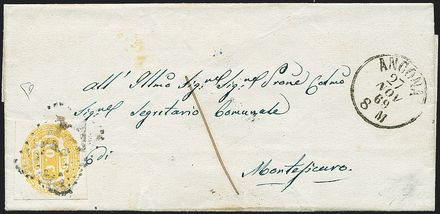 ANCONA
27
NOV
69
8 M
all' Illmo Sig.re Sig.re Prone Colmo
Sig.re Segretario Comunale
di
Montesicuro.
10